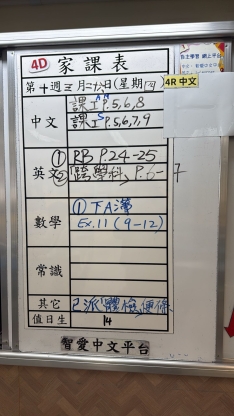 4D 家課表
第十週 三月二十八日(星期四)
4R 中文
中文
課工 P.5,6,8
課工 P.5,6,7,9
英文
① RB P.24-25
② 跨學科 P.6-7
數學
① 下A簿
Ex.11 (9-12)
常識
其它
已派體檢
值日生
14
智愛中文平台